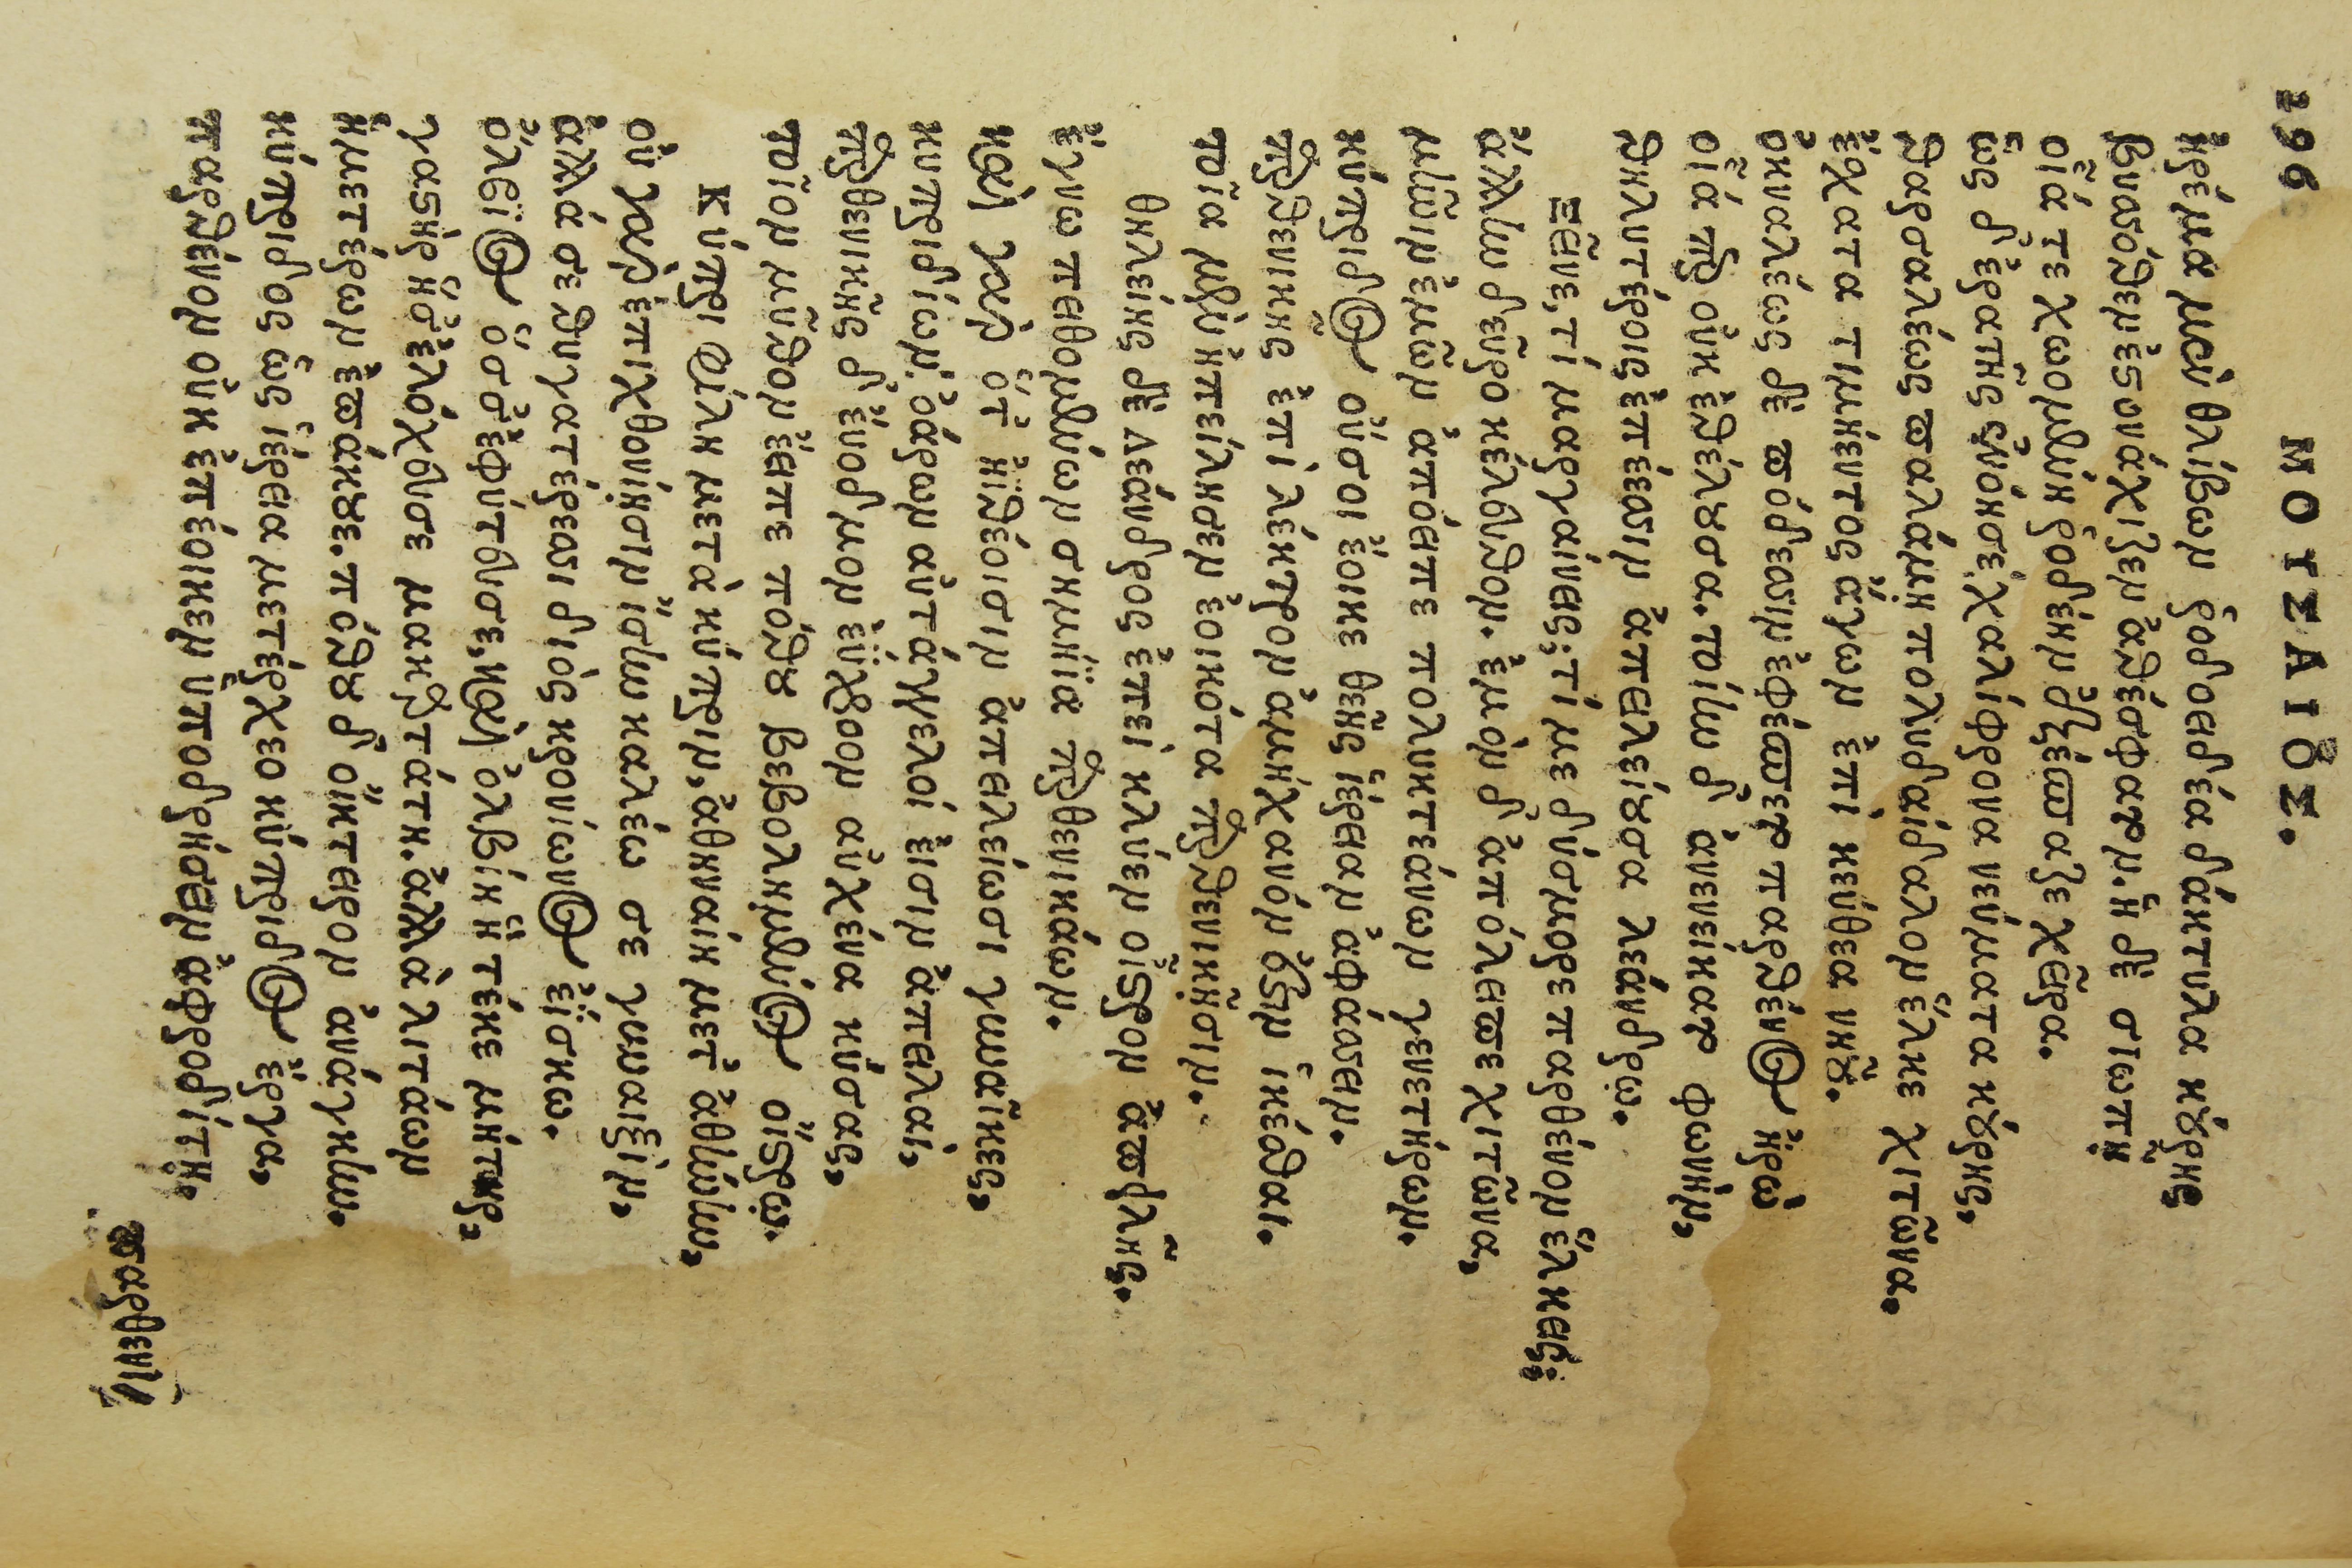 296 ΜΟΥΣΑΙΟΣ.
ἠρέμα μὲν θλίβων ῥοδοειδέα δάκτυλα κούρης
βυσσόθεν ἐστονάχιζεν ἀθέσφατον. ἡ δὲ σιωπῇ
οἷά τε χωομένη ῥοδέην ἐξέσπασε χεῖρα.
ὡς δ' ἐρατῆς ἐνόησε χαλίφρονα νεύματα κούρης,
θαρσαλέως παλάμῃ πολυδαίδαλον ἕλκε χιτῶνα.
ἔσχατα τιμήεντος ἄγων ἐπὶ κεύθεα νηοῦ.
ὀκναλέως δὲ πόδεσσιν ἐφέσπετο παρθένος ἡρὼ
οἷά περ οὐκ ἐθέλουσα. τοίην δ' ἀνενείκατο φωνὴν,
θηλυτέροις ἐπέεσσιν ἀπειλείουσα λεάνδρῳ.
Ξεῖνε, τί μαργαίνεις; τί με δύσμορε παρθένον ἕλκεις;
ἄλλην δεῦρο κέλευθον. ἐμὸν δ' ἀπόλειπε χιτῶνα,
μῆνιν ἐμῶν ἀπόειπε πολυκτεάνων γενετήρων.
κύπριδος οὔ σοι ἔοικε θεῆς ἱέρειαν ἀφάσσειν.
παρθενικῆς ἐπὶ λέκτρον ἀμήχανόν ἐστιν ἱκέσθαι.
τοῖα μὲν ἠπείλησεν ἐοικότα παρθενικῇσιν.
θηλείης δὲ λέανδρος ἐπεὶ κλύεν οἶστρον ἀπειλῆς.
ἔγνω πειθομένων σημήϊα παρθενικάων.
καὶ γὰρ ὅτ' ἠϊθέοισιν ἀπειλείωσι γυναῖκες,
κυπριδίων ὀάρων αὐτάγγελοί εἰσιν ἀπειλαὶ,
παρθενικῆς δ' εὔοδμον ἐΰχροον αὐχένα κύσας,
τοῖον μῦθον ἔειπε πόθου βεβολημένος οἴστρῳ.
Κύπρι φίλη μετὰ κύπριν, ἀθηναίη μετ' ἀθήνην,
οὐ γὰρ ἐπιχθονίῃσιν ἴσην καλέω σε γυναιξὶν,
ἀλλά σε θυγατέρεσσι διὸς κρονίωνος ἐΐσκω.
ὄλβιος ὅς σ' ἐφύτευσε, καὶ ὀλβίη ἣ τέκε μήτηρ,
γαστὴρ ἥ σ' ἐλόχευσε μακαρτάτη. ἀλλὰ λιτάων
ἡμετέρων ἐπάκουε. πόθου δ' οἴκτειρον ἀνάγκην.
κύπριδος ὡς ἱέρεια μετέρχεο κύπριδος ἔργα,
παρθένον οὐκ ἐπέοικεν ὑποδρήσσειν ἀφροδίτῃ.
παρθενι